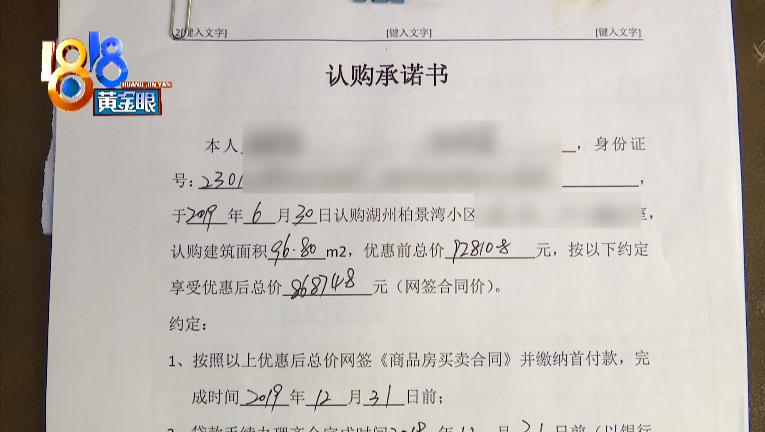 1818
HUANG JIN YAN
黄金眼
[键入文字] [键入文字] [键入文字]
认购承诺书
本人 ，身份证
号：2301 ，
于2019年6月30日认购湖州柏景湾小区 室，
认购建筑面积96.80m2，优惠前总价928108元，按以下约定
享受优惠后总价868748元（网签合同价）。
约定：
1、按照以上优惠后总价网签《商品房买卖合同》并缴纳首付款，完
成时间2019年12月31日前；